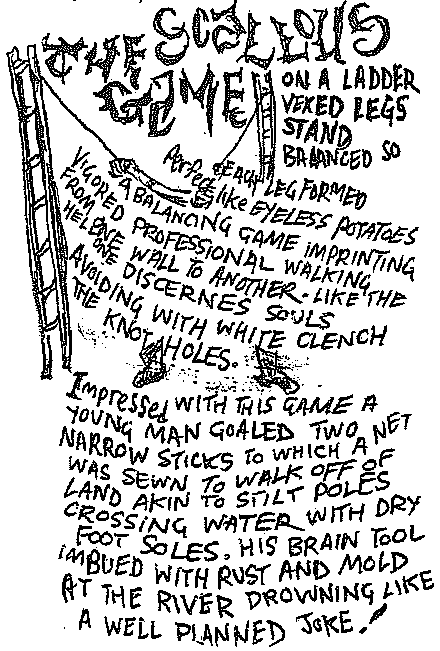 THE SCALEOUS
GAME
ON A LADDER
VEXED LEGS
STAND
BALANCED SO
Perfect EACH LEG FORMED
like EYELESS POTATOES
A BALANCING GAME IMPRINTING
VIGORED PROFESSIONAL WALKING
FROM ONE WALL TO ANOTHER. LIKE THE
HE DISCERNES SOULS
AVOIDING WITH WHITE CLENCH
THE KNOT HOLES.
Impressed WITH THIS GAME A
YOUNG MAN GOALED TWO
NARROW STICKS TO WHICH A NET
WAS SEWN TO WALK OFF OF
LAND AKIN TO STILT POLES
CROSSING WATER WITH DRY
FOOT SOLES. HIS BRAIN TOOL
IMBUED WITH RUST AND MOLD
AT THE RIVER DROWNING LIKE
A WELL PLANNED JOKE!